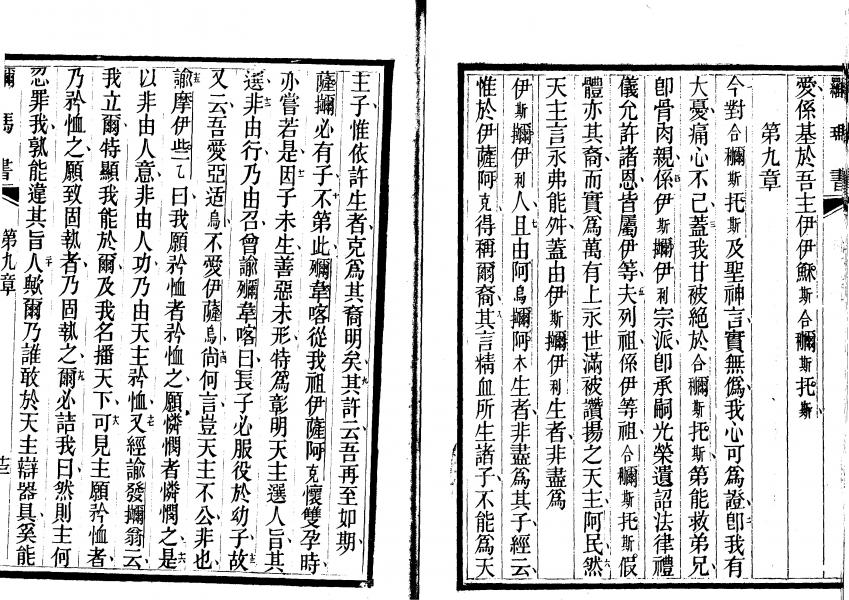 愛係基於吾主伊伊穌斯合𤄙斯托斯
第九章
今對合𤄙斯托斯及聖神言實無僞我心可爲證卽我有
大憂痛心不已蓋我甘被絕於合𤄙斯托斯第能救弟兄
卽骨肉親係伊斯𤄙伊利宗派卽承嗣光榮遺詔法律禮
儀允許諸恩皆屬伊等夫列祖係伊等祖合𤄙斯托斯假
體亦其裔而實爲萬有上永世滿被讚揚之天主阿民然
天主言永弗能舛蓋由伊斯𤄙伊利生者非盡爲
伊斯𤄙伊利人且由阿烏𤄙阿木生者非盡爲其子經云
惟於伊薩阿克得稱爾裔其言精血所生諸子不能爲天
主子惟依許生者克爲其裔明矣其許云吾再至如期
薩𤄙必有子不第此𤄙韋喀從我祖伊薩阿克懷雙孕時
亦嘗若是因子未生善惡未形特爲彰明天主選人旨其
選非由行乃由召曾諭𤄙韋喀曰長子必服役於幼子故
又云吾愛亞适烏不愛伊薩烏尙何言豈天主不公非也
諭摩伊些乙曰我願矜恤者矜恤之願憐憫者憐憫之是
以非由人意非由人功乃由天主矜恤又經諭發𤄙翁云
我立爾特顯我能於爾及我名播天下可見主願矜恤者
乃矜恤之願致固執者乃固執之爾必詰我曰然則主何
忿罪我孰能違其旨人歟爾乃誰敢於天主辯器具奚能
第九章